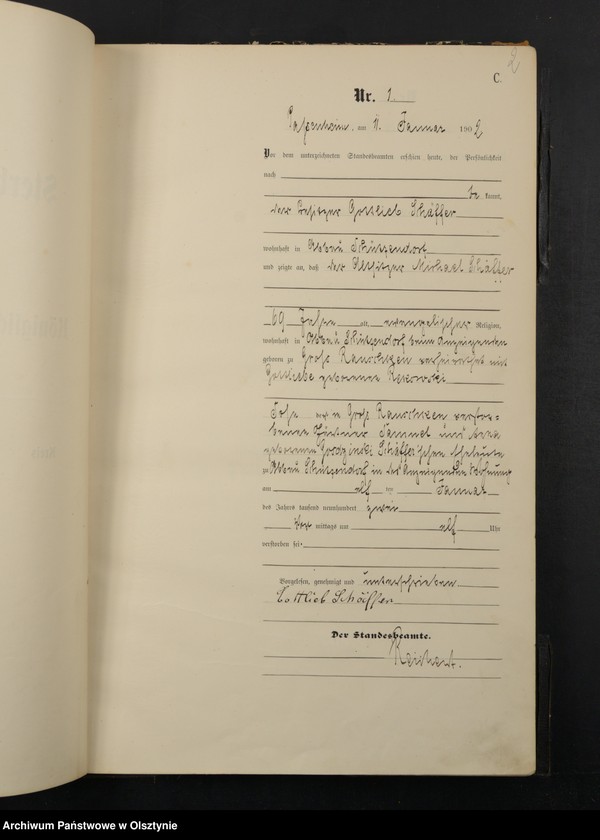 2
C.
Nr. 1.
am 11. Januar 1902
Vor dem unterzeichneten Standesbeamten erschien heute, der Persönlichkeit
nach
be kannt,
der Besitzer Gottlieb Schäffer
wohnhaft in Abbau Schützendorf
und zeigte an, daß der Altsitzer Michael Schäffer
69 Jahre alt, evangelischer Religion,
wohnhaft in Abbau Schützendorf beim Anzeigenden
geboren zu Groß Rauschken verheirathet mit
Gottliebe geborenen
Sohn der in Groß Rauschken verstor-
benen Samuel und
geborenen Schäffer'schen Eheleute
zu Abbau Schützendorf in des Anzeigenden Wohnung
am elf ten Januar
des Jahres tausend neunhundert zwei
Vor mittags um elf Uhr
verstorben sei.
Vorgelesen, genehmigt und unterschrieben
Gottlieb Schäffer
Der Standesbeamte.
Reichert.
Archiwum Państwowe w Olsztynie